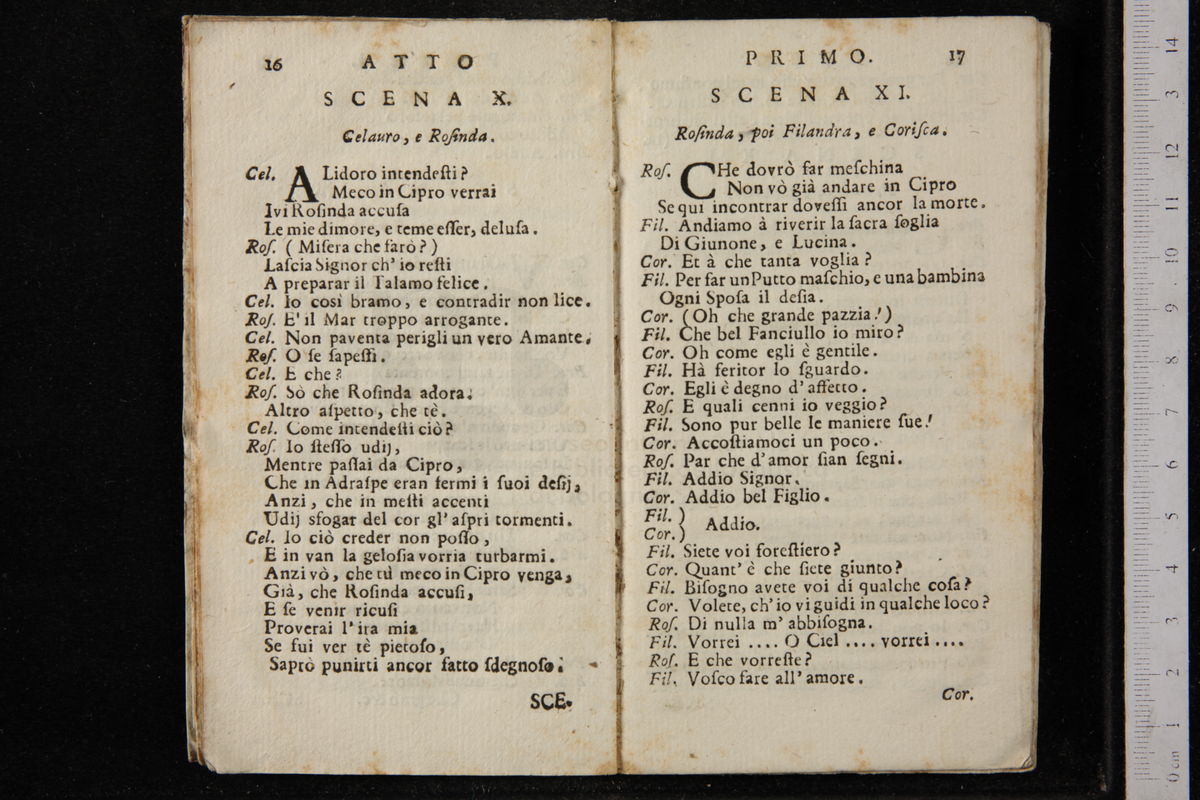 16 ATTO
SCENA X.
Celauro, e Roſinda.
Cel. ALidoro intendeſti?
Meco in Cipro verrai
Ivi Roſinda accuſa
Le mie dimore, e teme eſſer, deluſa.
Roſ. ( Miſera che farò? )
Laſcia Signor ch' io reſti
A preparar il Talamo felice.
Cel. Io così bramo, e contradir non lice.
Roſ. E' il Mar troppo arrogante.
Cel. Non paventa perigli un vero Amante.
Roſ. O ſe ſapeſſi.
Cel. E che?
Roſ. Sò che Roſinda adora.
Altro aſpetto, che tè.
Cel. Come intendeſti ciò?
Roſ. Io ſteſſo udij,
Mentre paſſai da Cipro,
Che in Adraſpe eran fermi i ſuoi deſij,
Anzi, che in meſti accenti
Udij sfogar del cor gl' aſpri tormenti.
Cel. Io ciò creder non poſſo,
E in van la geloſia vorria turbarmi.
Anzi vò, che tù meco in Cipro venga,
Già, che Roſinda accuſi,
E ſe venir ricuſi
Proverai l' ira mia
Se fui ver tè pietoſo,
Saprò punirti ancor fatto ſdegnoſo.
SCE.
PRIMO. 17
SCENA XI.
Roſinda, poi Filandra, e Coriſca.
Roſ. CHe dovrò far meſchina
Non vò già andare in Cipro
Se qui incontrar doveſſi ancor la morte.
Fil. Andiamo à riverir la ſacra ſoglia
Di Giunone, e Lucina.
Cor. Et à che tanta voglia?
Fil. Per far un Putto maſchio, e una bambina
Ogni Spoſa il deſia.
Cor. (Oh che grande pazzia!)
Fil. Che bel Fanciullo io miro?
Cor. Oh come egli è gentile.
Fil. Hà feritor lo ſguardo.
Cor. Egli è degno d' affetto.
Roſ. E quali cenni io veggio?
Fil. Sono pur belle le maniere ſue!
Cor. Accoſtiamoci un poco.
Roſ. Par che d' amor ſian ſegni.
Fil. Addio Signor.
Cor. Addio bel Figlio.
Fil. )
Addio.
Cor. )
Fil. Siete voi foreſtiero?
Cor. Quant' è che ſiete giunto?
Fil. Biſogno avete voi di qualche coſa?
Cor. Volete, ch' io vi guidi in qualche loco?
Roſ. Di nulla m' abbiſogna.
Fil. Vorrei .... O Ciel .... vorrei ....
Roſ. E che vorreſte?
Fil. Voſco fare all' amore.
Cor.
14
13
12
11
10
9
8
7
6
5
4
3
2
1
0 cm